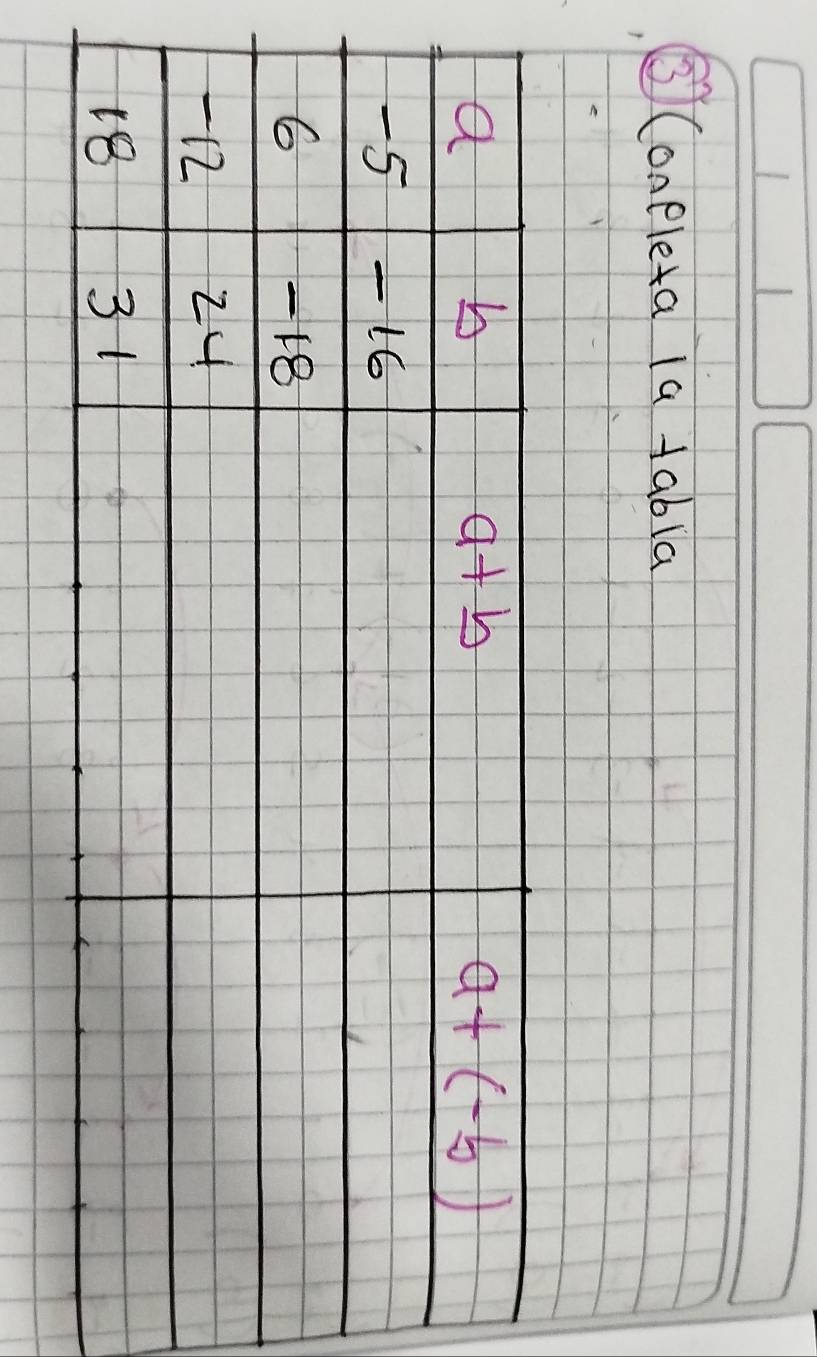 3 Conpleta la tabla
a b a+b a+(-b)
-5 -16
6 -18
-12 24
18 31